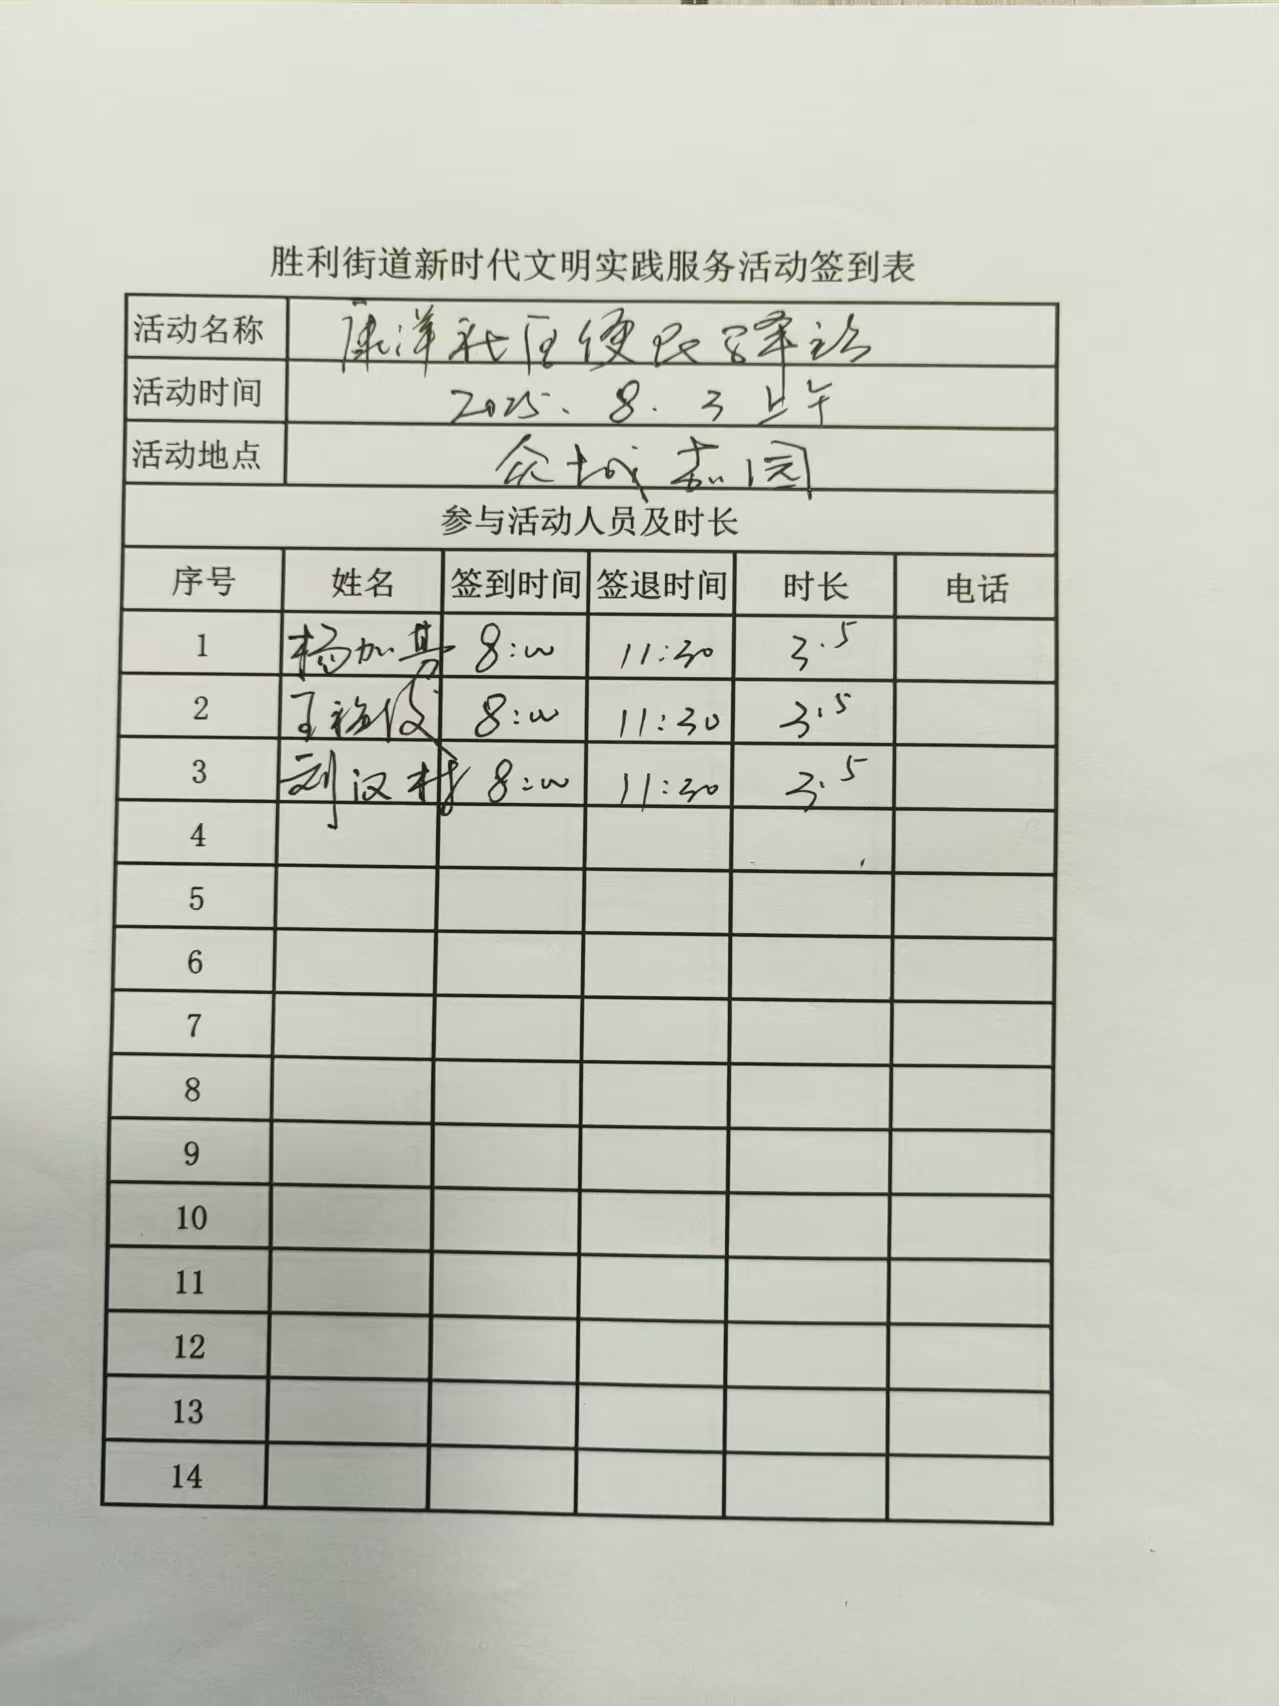 胜利街道新时代文明实践服务活动签到表
活动名称 康洋社区便民驿站
活动时间 2025.8.3上午
活动地点 众城嘉园
参与活动人员及时长
序号 姓名 签到时间 签退时间 时长 电话
1 杨加勇 8:00 11:30 3.5
2 王 8:00 11:30 3.5
3 刘汉村 8:00 11:30 3.5
4
5
6
7
8
9
10
11
12
13
14